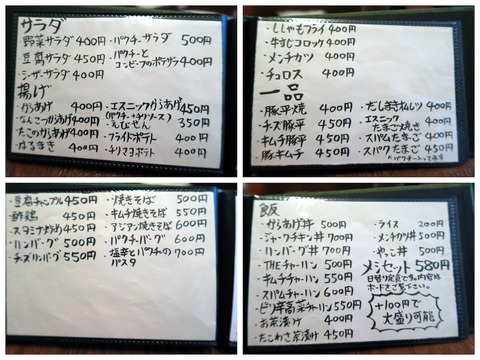 サラダ
野菜サラダ 400円 ・パクチーサラダ 500円
豆腐サラダ 450円 ・パクチーと
シーザーサラダ 400円 コンビーフのポテサラ 400円
揚げ
・からあげ 400円 ・エスニックからあげ 450円
・なんこつからあげ 400円 (パクチー+チリソース)
・たこのからあげ 400円 ・えびせん 350円
・はるまき 400円 ・フライドポテト 400円
・チリマヨポテト 400円
・ししゃもフライ 400円
・牛すじコロッケ 400円
・メンチカツ 400円
・チュロス 400円
一品
・豚平焼 400円 ・だしまきねぎ入り 400円
・チーズ豚平 450円 ・エスニック
たまご焼き 450円
・キムチ豚平 450円 ・スパムたまご 400円
・豚キムチ 450円 ・スパクたまご 450円
・豆腐チャンプルー 450円 ・焼きそば 500円
・酢鶏 450円 ・キムチ焼きそば 550円
・スタミナ炒め 450円 ・アジアン焼きそば 600円
・ハンバーグ 500円 ・パクチーバーグ 600円
・チーズハンバーグ 550円 ・塩辛とパクチーの 700円
パスタ
飯
・からあげ丼 500円 ・ライス 200円
・ジャークチキン丼 700円 ・メンチカツ丼 500円
・ハンバーグ丼 700円 ・やっこ丼 500円
・THEチャーハン 500円 メシセット 580円
・キムチチャーハン 550円 日替り定食です。内容は
ボードをご覧下さい。
・スパムチャーハン 600円
・ピリ辛高菜チャーハン 550円 +100円で
・お茶漬け 400円 大盛り可能
・たこわさ茶漬け 450円